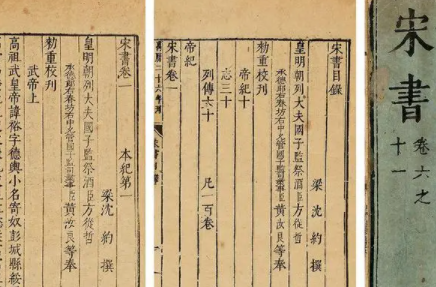 宋書
卷六之
十一
宋書目錄
梁沈約撰
皇明朝列大夫國子監祭酒臣方從哲
承德郎右春坊右中允管國子監司業事臣黃汝良等奉
勑重校刊
帝紀十
志三十
列傳六十
凡一百卷
萬曆二十六年刊
帝紀
宋書卷一
宋書卷一 本紀第一
梁沈約撰
皇明朝列大夫國子監祭酒臣方從哲
承德郎右春坊右中允管國子監司業事臣黃汝良等奉
勑重校刊
武帝上
高祖武皇帝諱裕字德輿小名寄奴彭城縣綏